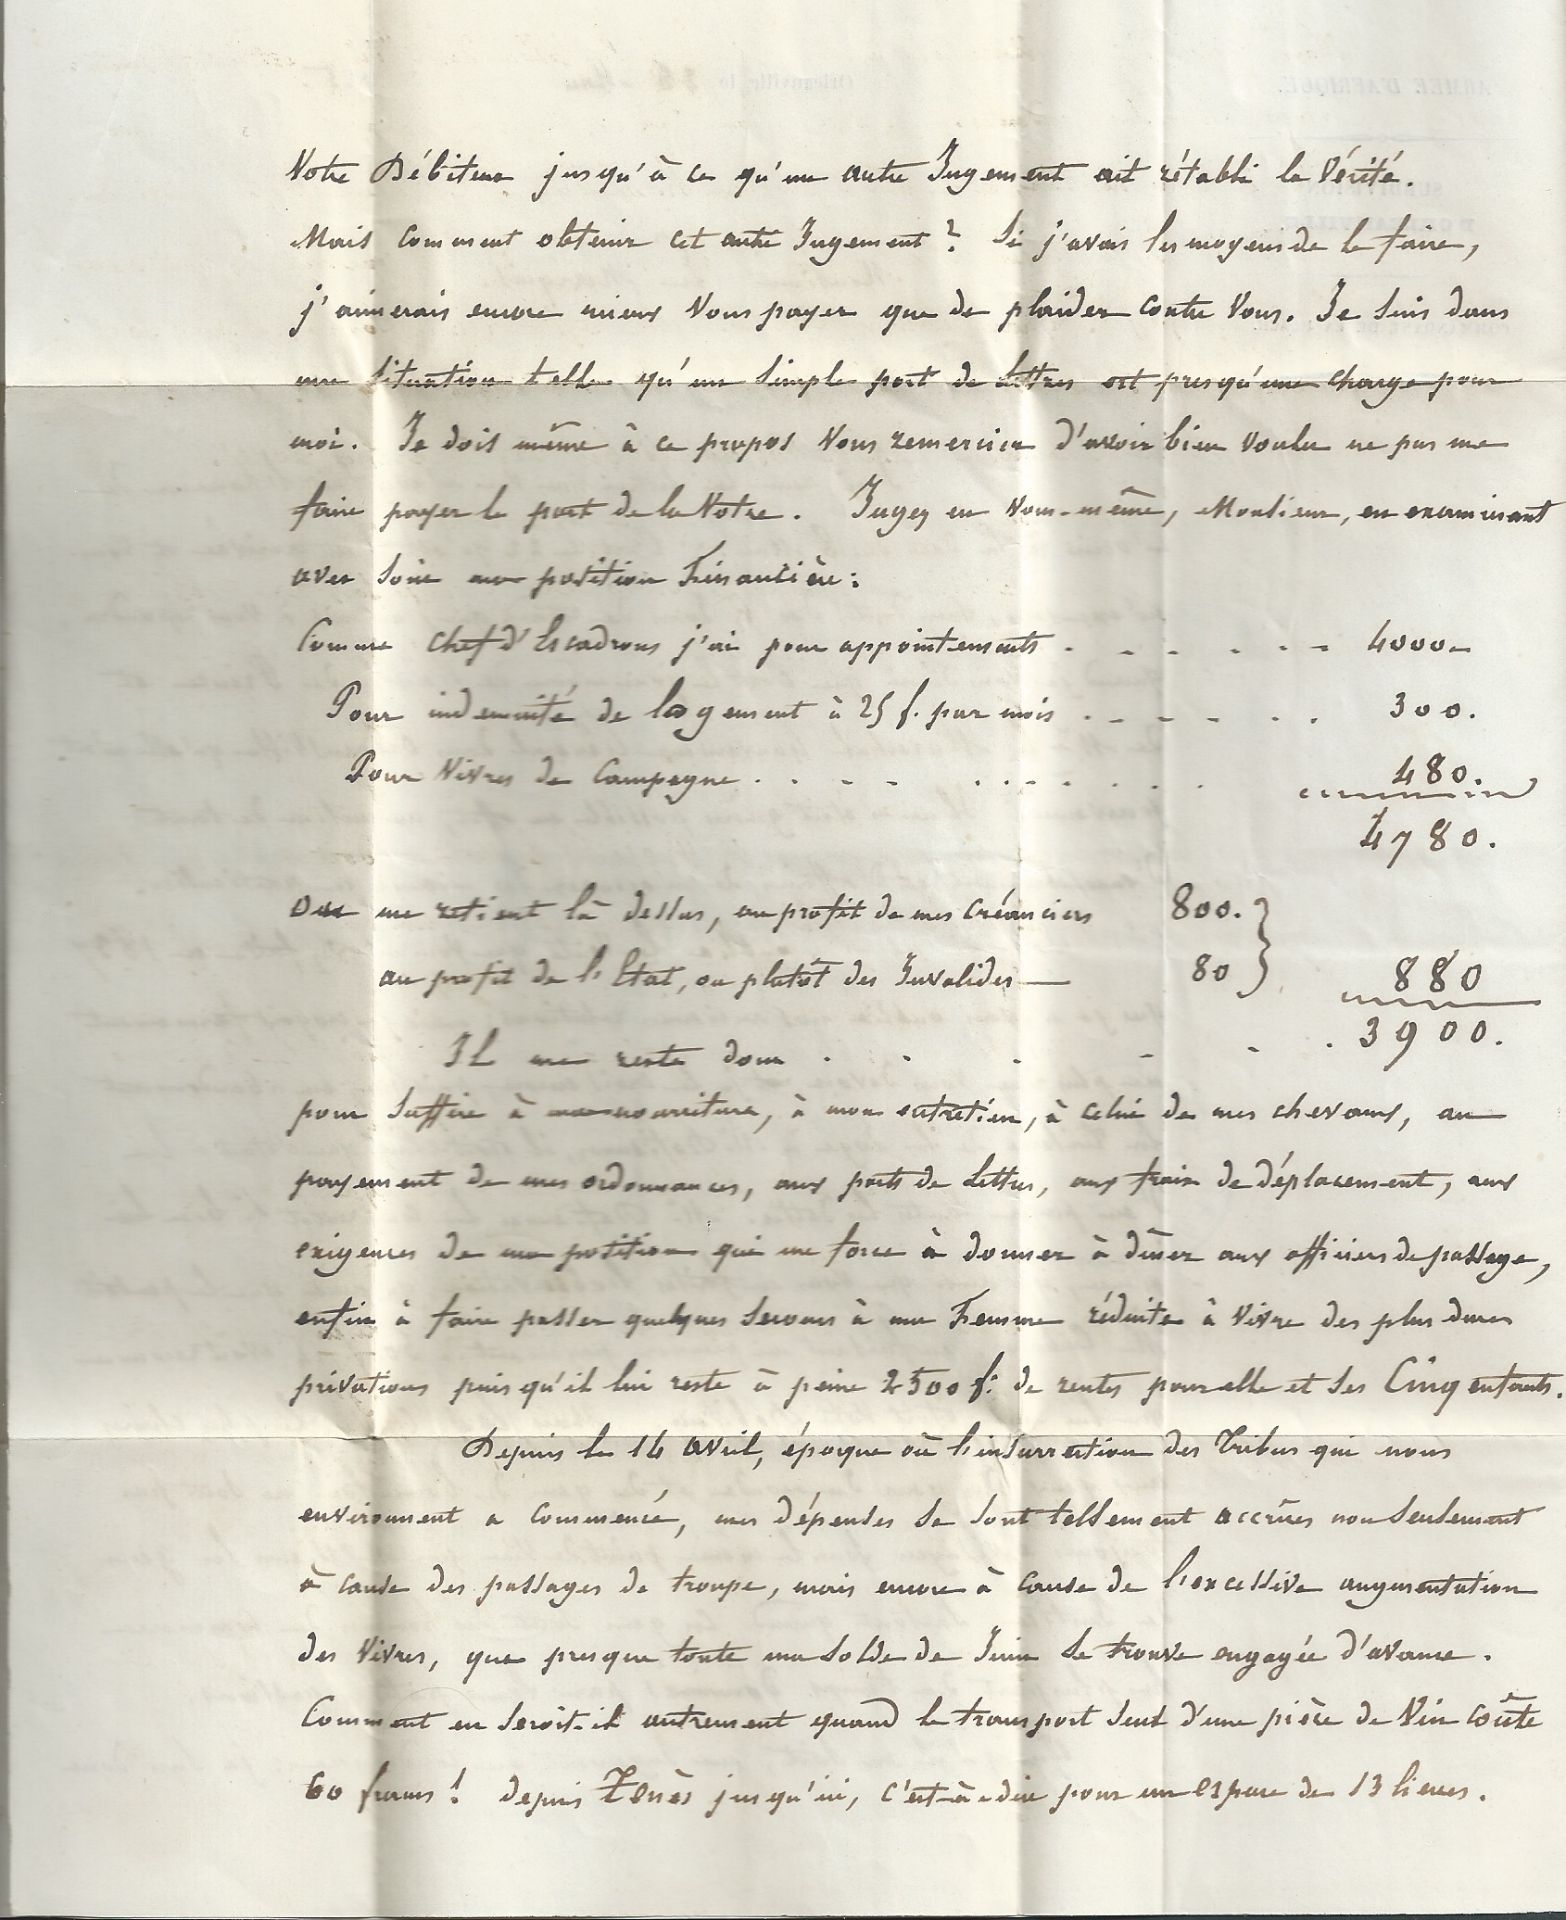 Votre Débiteur jusqu'à ce qu'un autre Jugement ait rétabli la Vérité.
Mais comment obtenir cet autre Jugement ? Si j'avais les moyens de le faire,
j'aimerais encore mieux Vous payer que de plaider contre Vous. Je suis dans
une situation telle qu'un simple port de Lettres est presqu'une charge pour
moi. Je dois même à ce propos Vous remercier d'avoir bien voulu ne pas me
faire payer le port de la Votre. Jugez en Vous-même, Monsieur, en examinant
avec soin ma position Financière :
Comme chef d'Escadrons j'ai pour appointements . - - . - - 4000 -
Pour indemnité de logement à 25 f. par mois . - - - . . 300.
Pour Vivres de Campagne . . - - . . . . . . 480.
4780.
on me retient là dessus, au profit de mes créanciers 800.
au profit de l'Etat, ou plutôt des Invalides — 80 } 880
Il me reste donc . . . - - . 3900.
pour suffire à ma nourriture, à mon entretien, à celui de mes chevaux, au
payement de mes ordonnances, aux ports de Lettres, aux frais de déplacement, aux
exigences de ma position qui me force à donner à dîner aux officiers de passage,
enfin à faire passer quelques secours à ma Femme réduite à vivre des plus dures
privations puisqu'il lui reste à peine 2500 f. de rentes pour elle et ses Cinq enfants.
Depuis le 14 avril, époque où l'insurrection des Tribus qui nous
environnent a commencé, mes dépenses se sont tellement accrûes non seulement
à cause des passages de troupe, mais encore à cause de l'excessive augmentation
des Vivres, que presque toute ma solde de Juin se trouve engagée d'avance.
Comment en serait-il autrement quand le transport seul d'une pièce de Vin coûte
60 francs ! depuis Ténès jusqu'ici, c'est-à-dire pour un espace de 13 lieues.